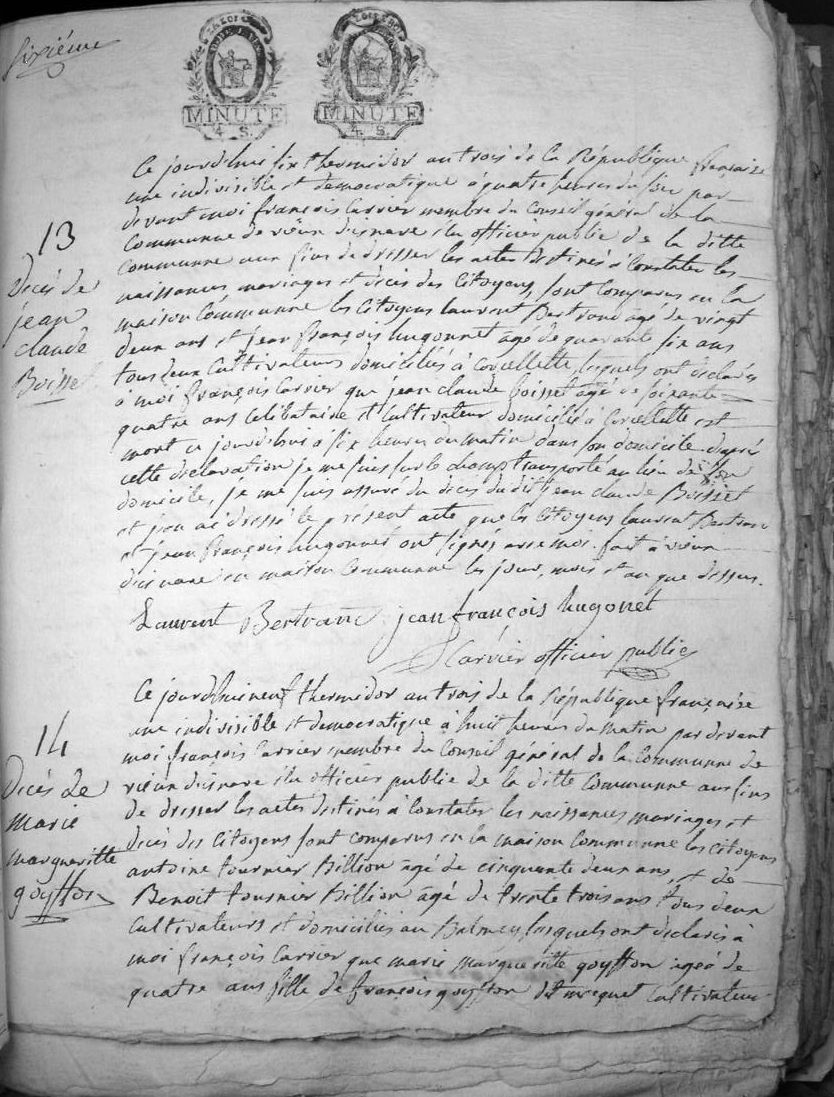 Sixiéme
LA LOI
LA LOI
MINUTE
4. S.
MINUTE
4. S.
Ce jourdhui six thermidor an trois de la République française
une indivisible et democratique a quatre heures du soir par
devant moi françois Carrier membre du Conseil général de la
Communne de vieux disnave élu officier public de la ditte
Communne aux fins de dresser les actes destinés à Constater les
naissances mariages et décés des Citoyens, sont Comparus en la
maison Communne les Citoyens laurent Bertrand agé de vingt
deux ans et jean françois hugonnet agé de quarante six ans
tous deux Cultivateurs domiciliés à Corcellette lesquels ont déclarés
à moi françois Carrier que jean claude boisset agé de soixante
quatre ans Celibataire et Cultivateur domicilié à Corcellette est
mort ce jourdhui a six heures du matin dans son domicile. d'après
cette declaration je me suis sur le champ transporté au lieu de son
domicile, je me suis assuré du décés du dit jean claude Boisset
et j'en ai dressé le présent acte que les Citoyens laurent Bertrand
et jean françois hugonnet ont signés avec moi. fait à vieux
disnave en maison Communne les jour, mois et an que dessus.
13
Décés de
jean
claude
Boisset
Laurent Bertrand jean françois hugonet
Carrier officier public
Ce jourdhui neuf thermidor an trois de la République française
une indivisible et democratique a huit heures du matin par devant
moi françois Carrier membre du Conseil général de la Communne de
vieux disnave élu officier public de la ditte Communne aux fins
de dresser les actes destinés à Constater les naissances mariages et
décés des Citoyens sont comparus en la maison Communne les Citoyens
antoine tournier Billion âgé de cinquante deux ans, et de
Benoit tournier Billion âgé de trente trois ans tous deux
Cultivateurs et domiciliés au Balmey, lesquels ont déclarés à
moi françois Carrier que marie marguerite goyffon agée de
quatre ans fille de françois goyffon dit Cultivateur
14
Décés de
marie
margueritte
goyffon